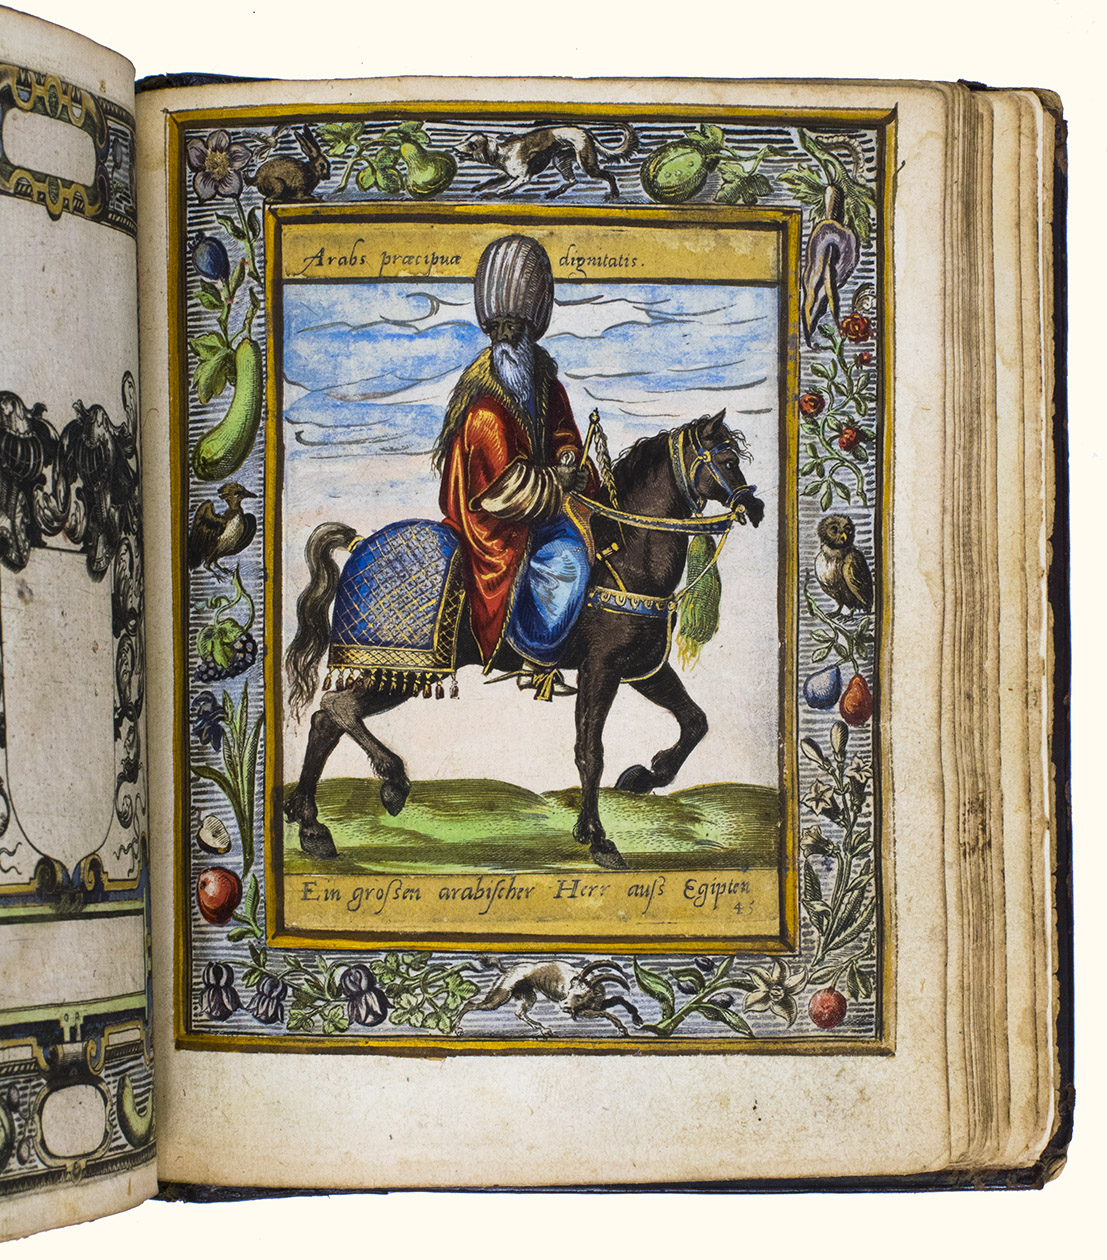 Arabs præcipuæ dignitatis.
Ein großen arabischer Herr auß Egipten
45